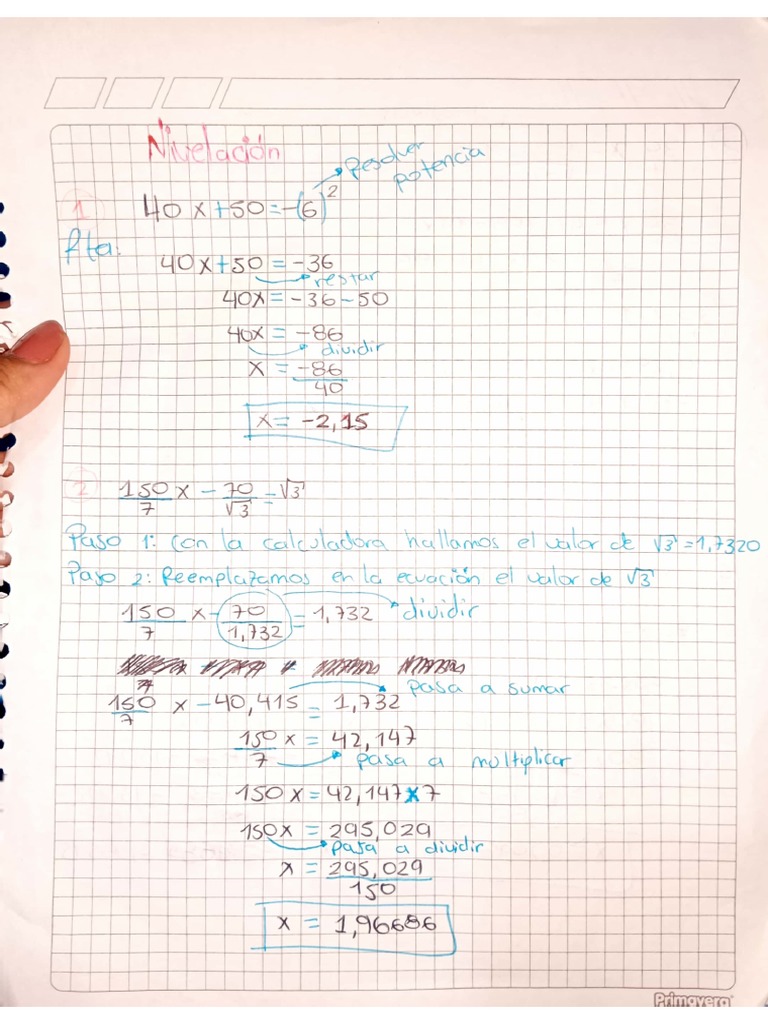 Nivelación
Resolver
potencia
1 40 x + 50 = -(6)²
Rta:
40x + 50 = -36
restar
40x = -36 - 50
40x = -86
dividir
x = -86/40
x = -2,15
2 150/7 x - 70/√3 = √3
Paso 1: Con la calculadora hallamos el valor de √3 = 1,7320
Paso 2: Reemplazamos en la ecuación el valor de √3
150/7 x - 70/1,732 = 1,732 dividir
pasa a sumar
150/7 x - 40,415 = 1,732
150/7 x = 42,147
pasa a multiplicar
150x = 42,147 x 7
150x = 295,029
pasa a dividir
x = 295,029/150
x = 1,96686
Primavera